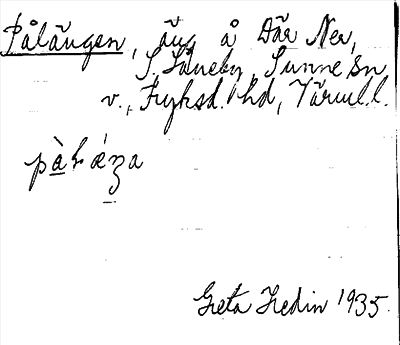 Pålängen, äng å Där Ner,
S. Såneby, Sunne sn
v., Fryksd. hd, Värml. l.
Greta Hedin 1935.